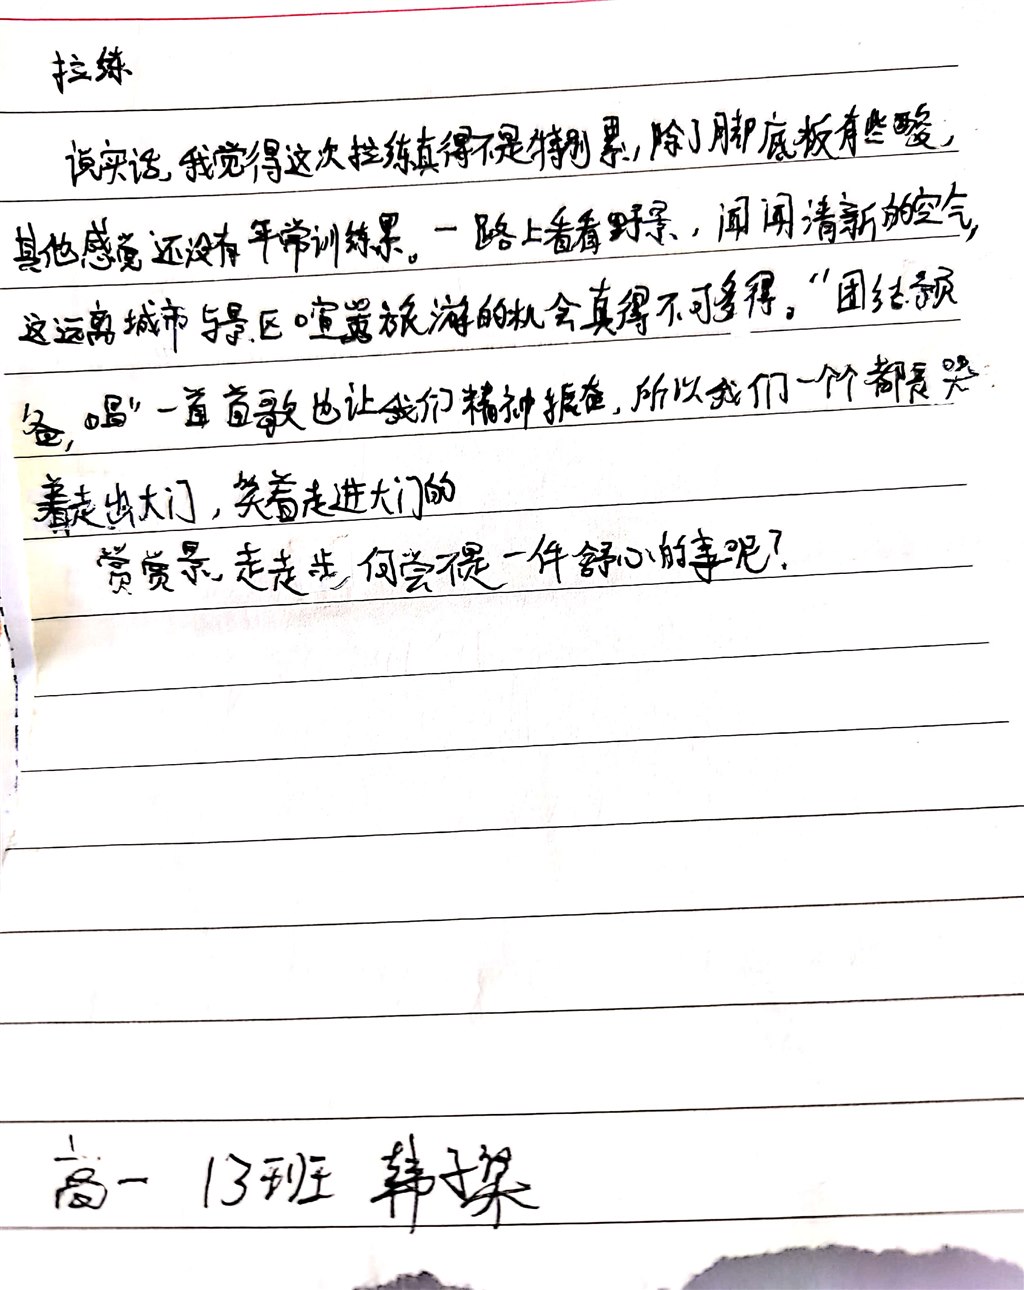 拉练
说实话,我觉得这次拉练真得不是特别累,除了脚底板有些酸,
其他感觉还没有平常训练累。一路上看看野景,闻闻清新的空气,
这远离城市与景区喧嚣旅游的机会真得不可多得。“团结预
备,唱”一首首歌也让我们精神振奋,所以我们一个个都是哭
着走出大门,笑着走进大门的
赏赏景,走走步,何尝不是一件舒心的事呢?
高一 13班 韩子桀